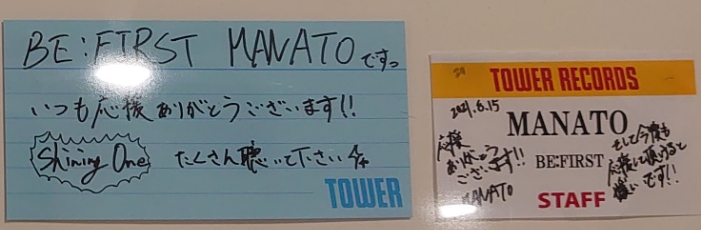 BE:FIRST MANATOですっ
いつも応援ありがとうございます!!
Shining One
たくさん聴いて下さい
TOWER
TOWER RECORDS
2021.8.15
MANATO
BE:FIRST
STAFF
応援
ありがとう
ございます!!
MANATO
そして今後も
応援して頂けると
嬉しいです!!